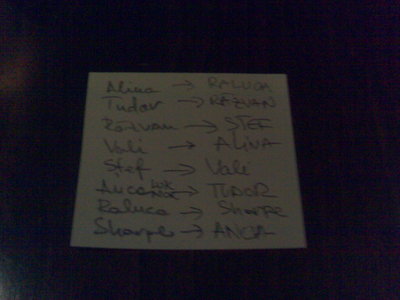 Alina → RALUCA
Tudor → RĂZVAN
RĂZVAN → STEF
Vali → ALINA
Stef → Vali
Anca → TUDOR
Raluca → Sharpe
Sharpe → ANCA